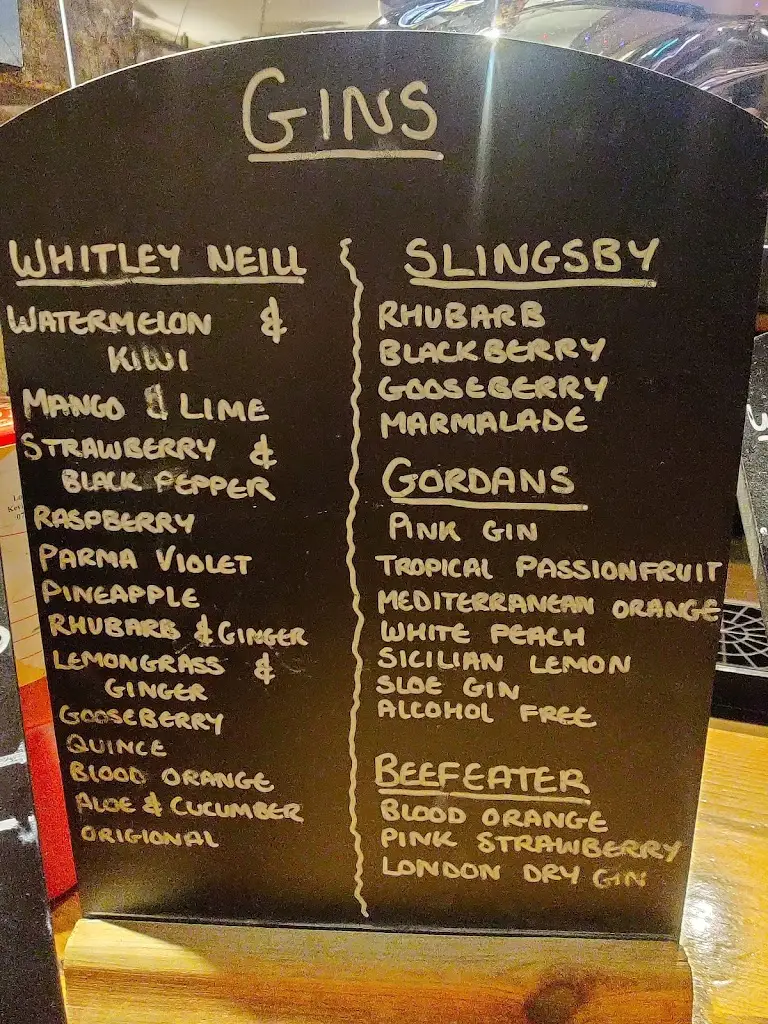 GINS
WHITLEY NEILL
WATERMELON &
KIWI
MANGO & LIME
STRAWBERRY &
BLACK PEPPER
RASPBERRY
PARMA VIOLET
PINEAPPLE
RHUBARB & GINGER
LEMONGRASS &
GINGER
GOOSEBERRY
QUINCE
BLOOD ORANGE
ALOE & CUCUMBER
ORIGIONAL
SLINGSBY
RHUBARB
BLACKBERRY
GOOSEBERRY
MARMALADE
GORDANS
PINK GIN
TROPICAL PASSIONFRUIT
MEDITERRANEAN ORANGE
WHITE PEACH
SICILIAN LEMON
SLOE GIN
ALCOHOL FREE
BEEFEATER
BLOOD ORANGE
PINK STRAWBERRY
LONDON DRY GIN